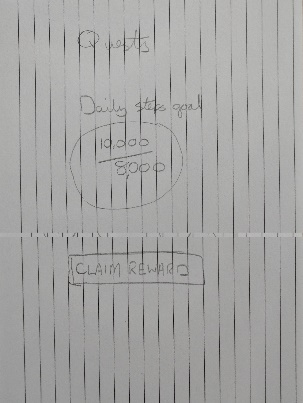 Quests
Daily steps goal
10,000
8,000
CLAIM REWARD